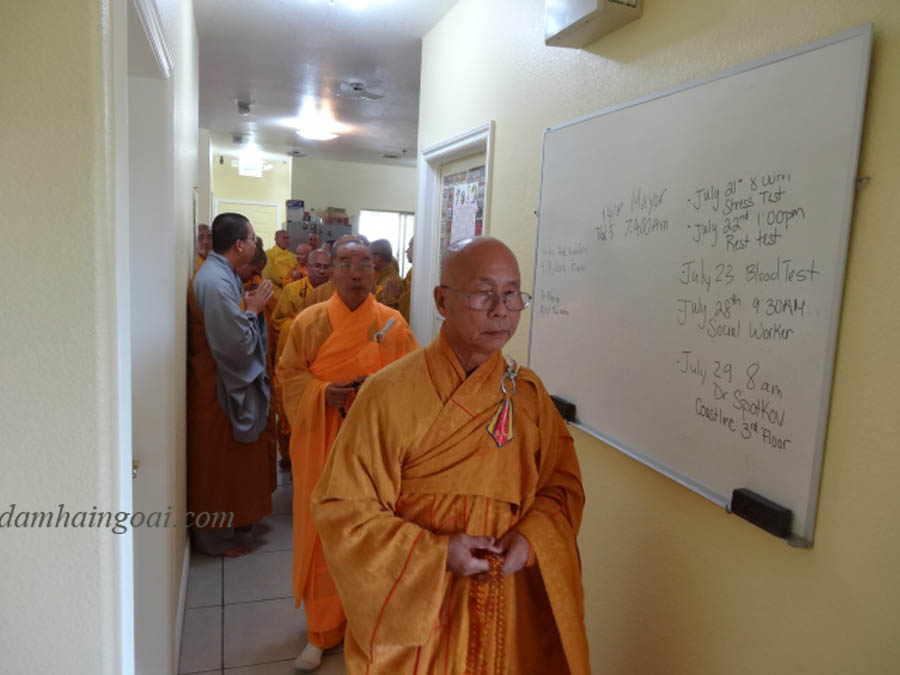 Mayor
7:40 am
July 21st 8
Stress Test
July 22nd 1:00pm
Rest test
July 23 Blood Test
July 28th 9 30AM
Social Worker
July 29 8am
Dr Spotkov
Coastline 3rd Floor
damhaingoai.com